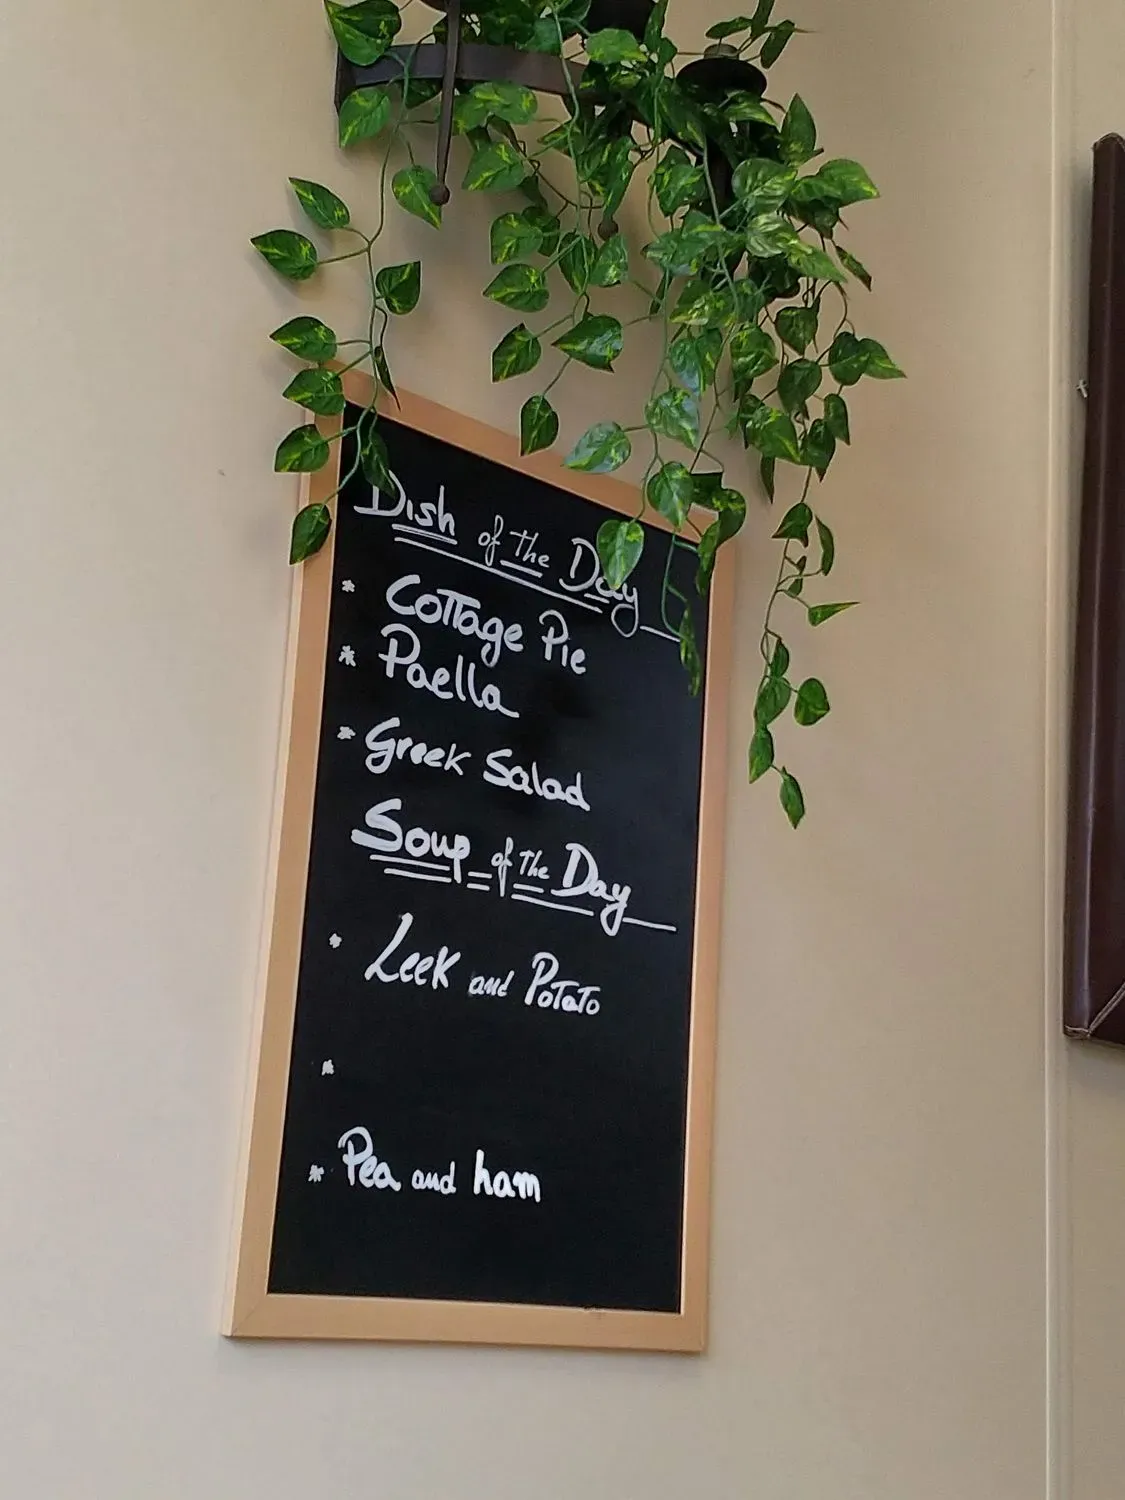 Dish of the Day
* Cottage Pie
* Paella
* Greek Salad
Soup of the Day
* Leek and Potato
*
* Pea and ham